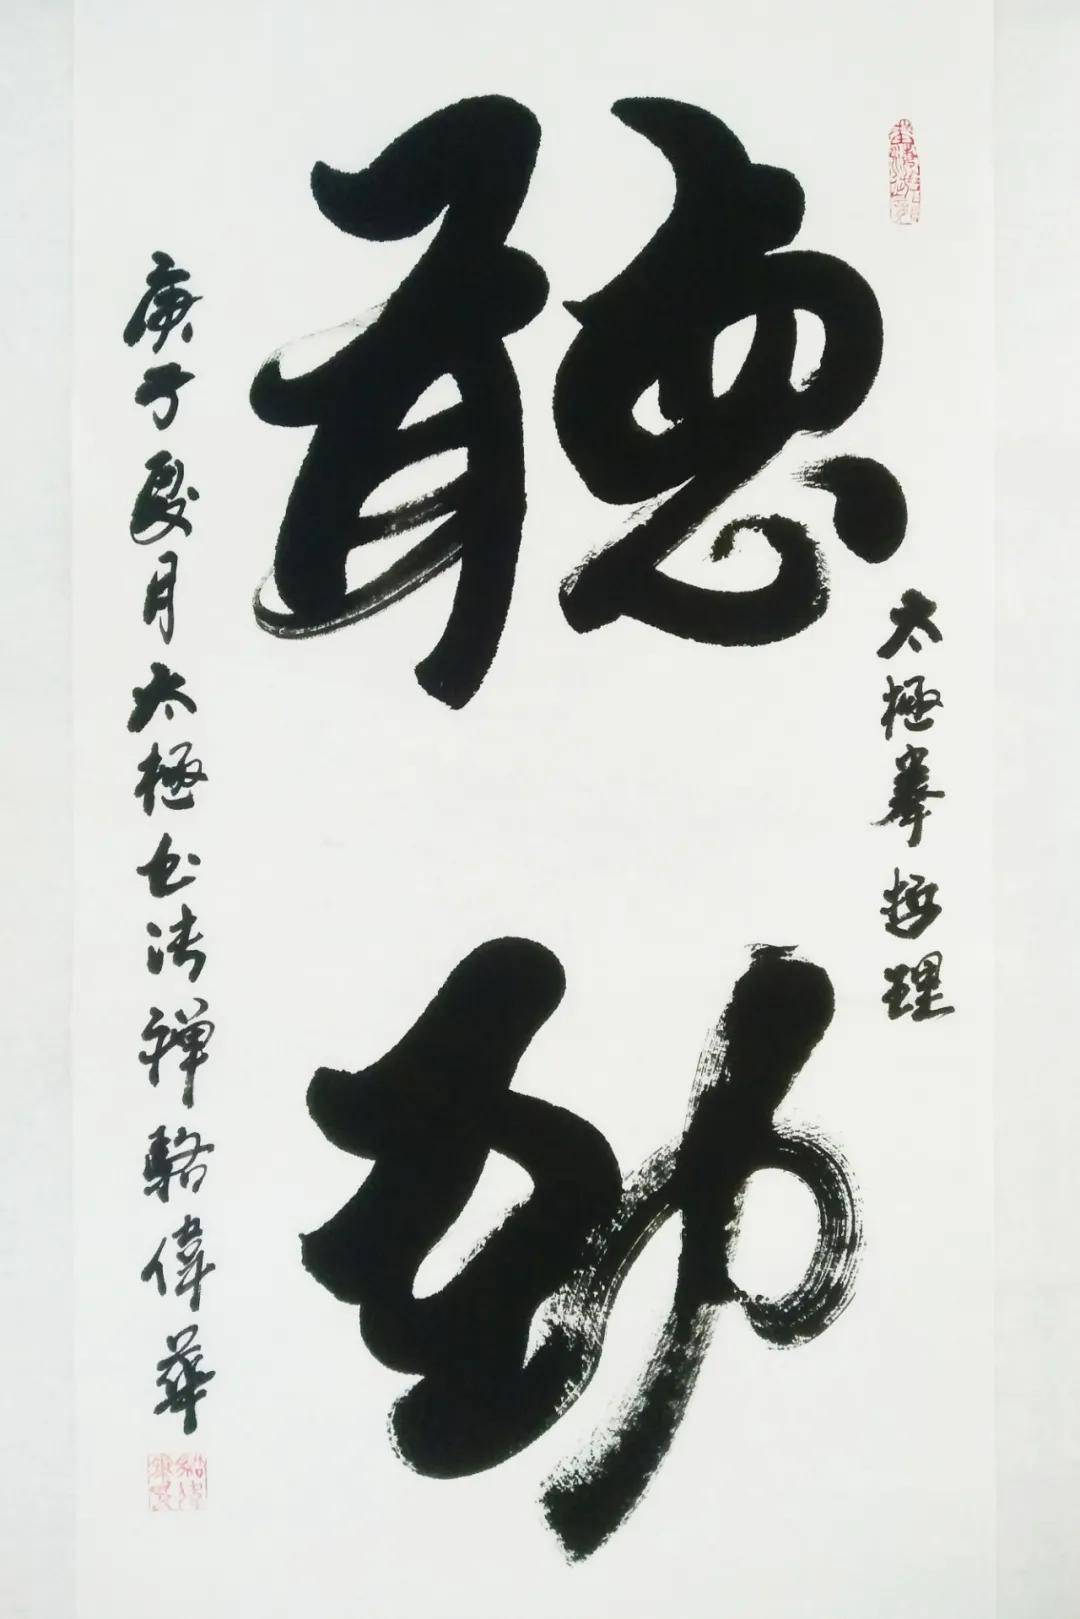 聽劲
太極拳哲理
庚子夏月太極书法禅駱偉華